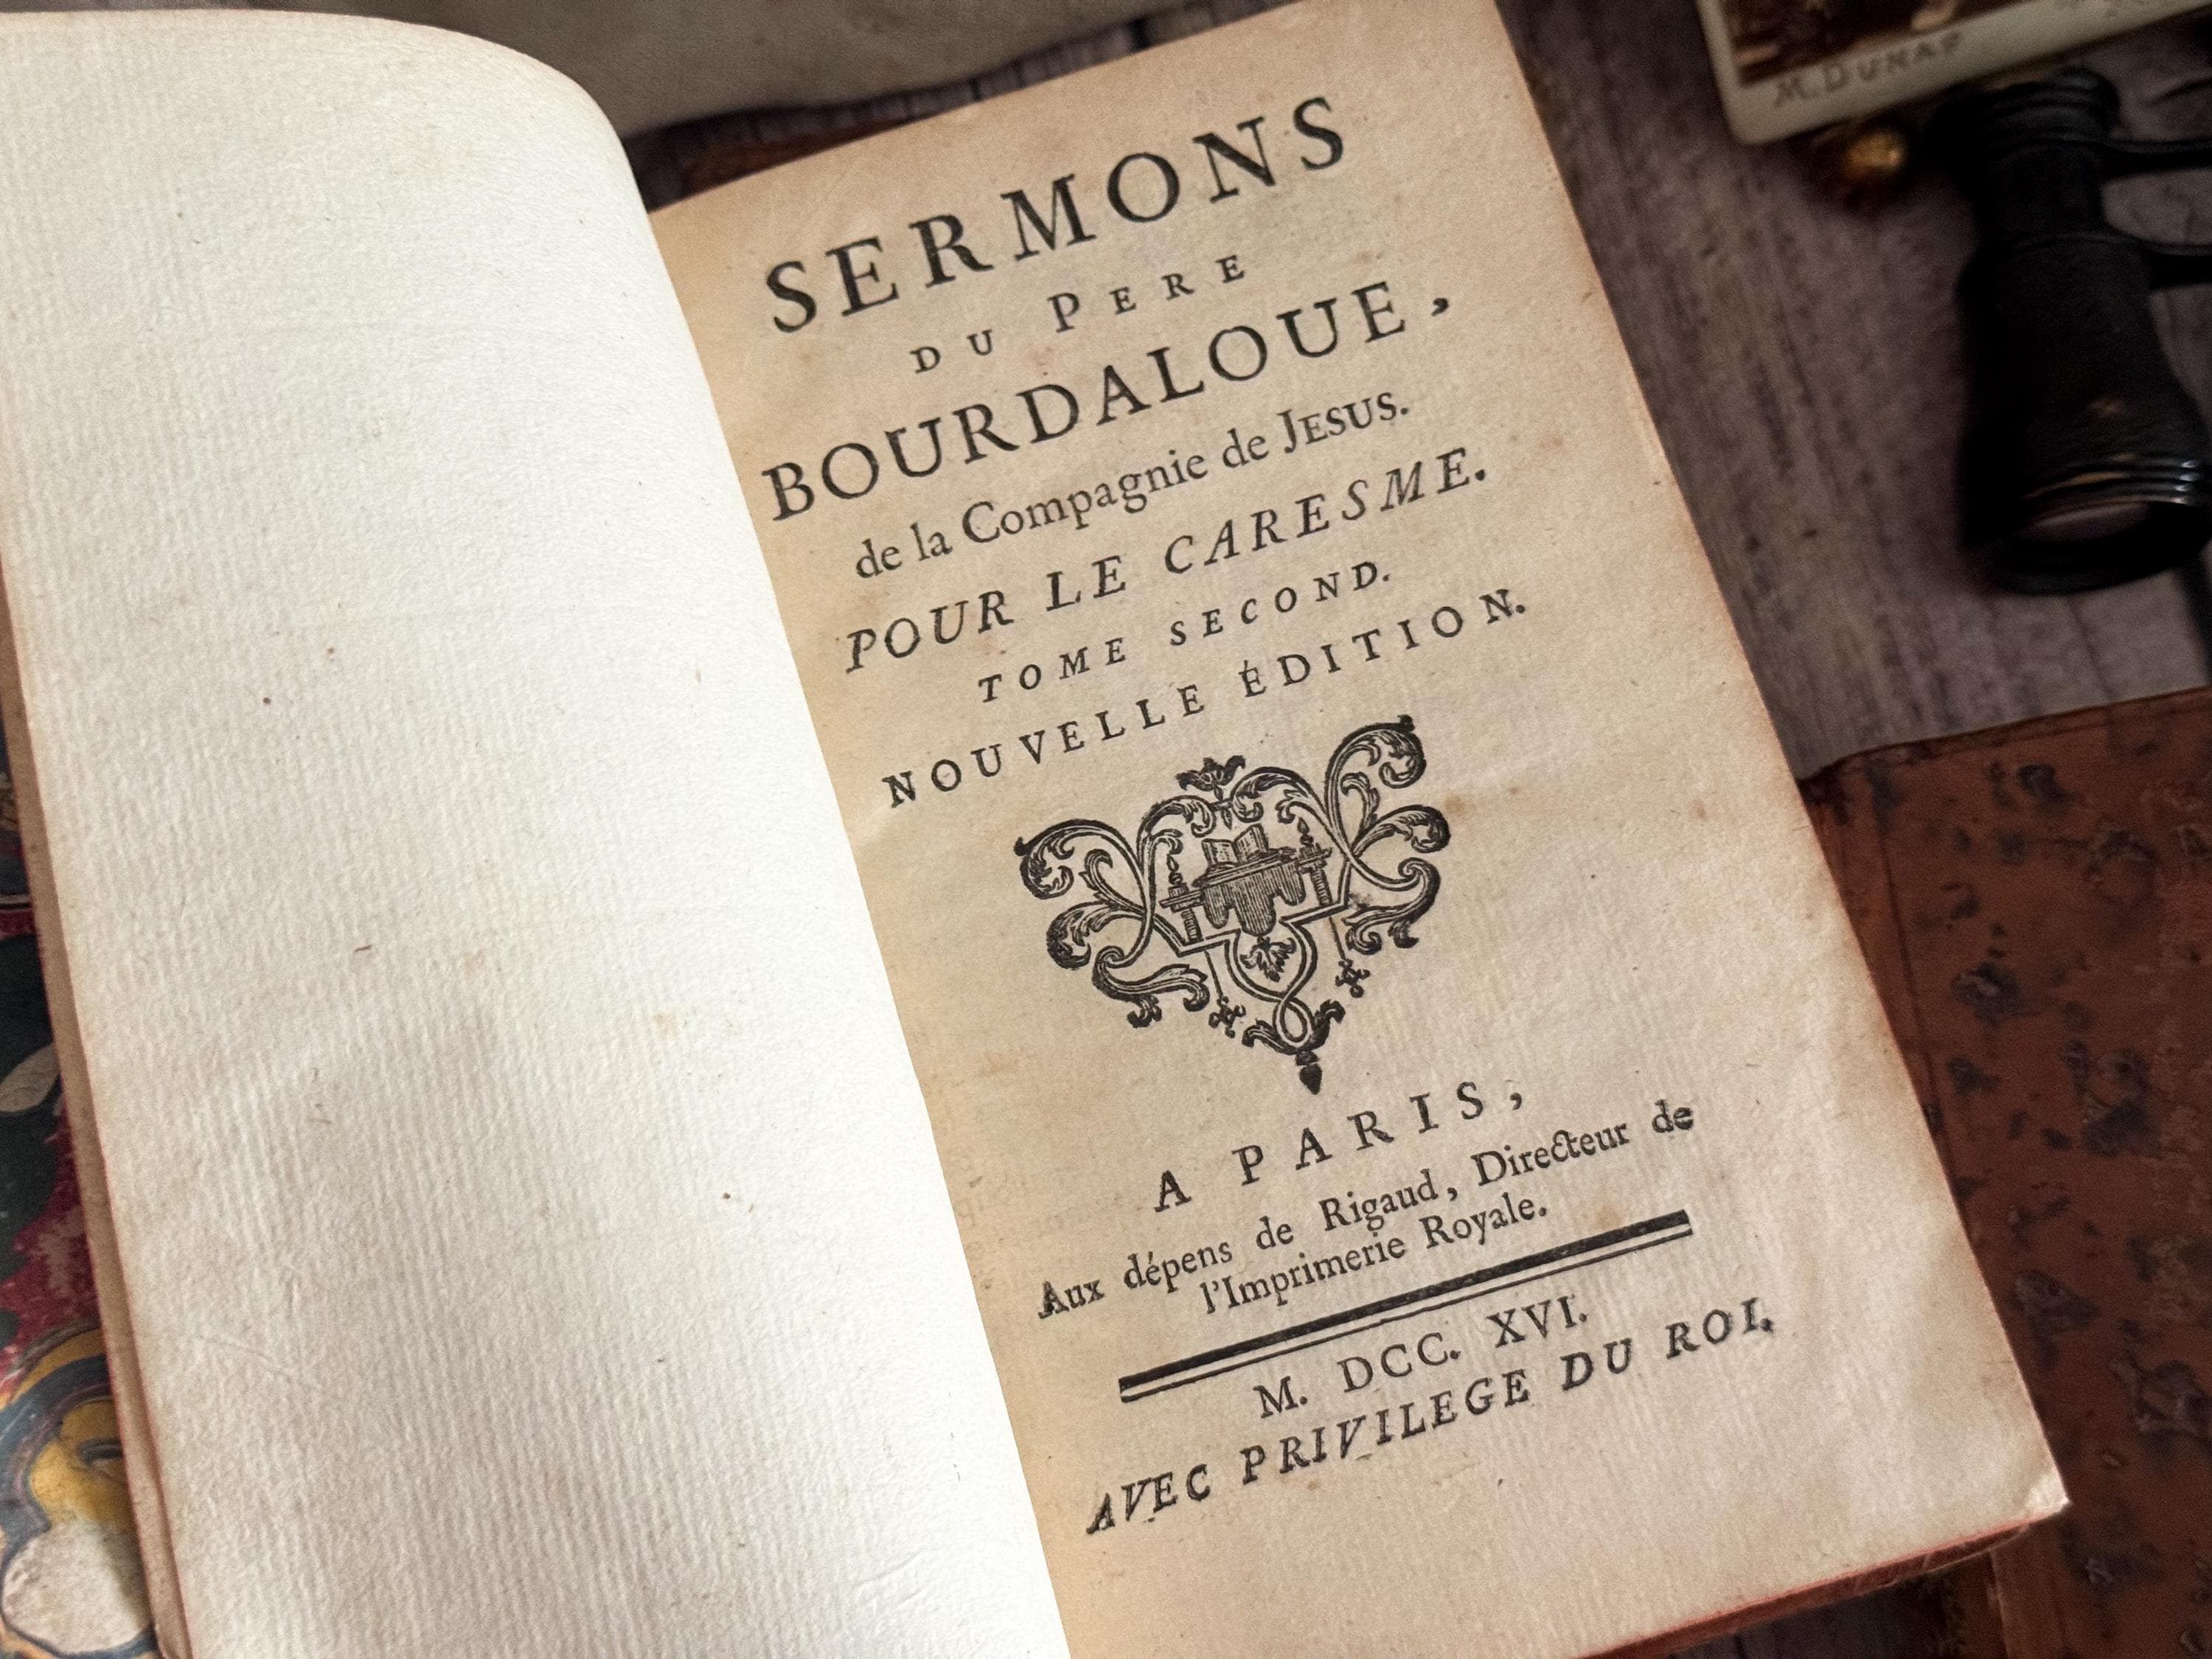 SERMONS
DU PERE
BOURDALOUE,
de la Compagnie de JESUS.
POUR LE CARESME.
TOME SECOND.
NOUVELLE ÉDITION.
A PARIS,
Aux dépens de Rigaud, Directeur de
l'Imprimerie Royale.
M. DCC. XVI.
AVEC PRIVILEGE DU ROI.